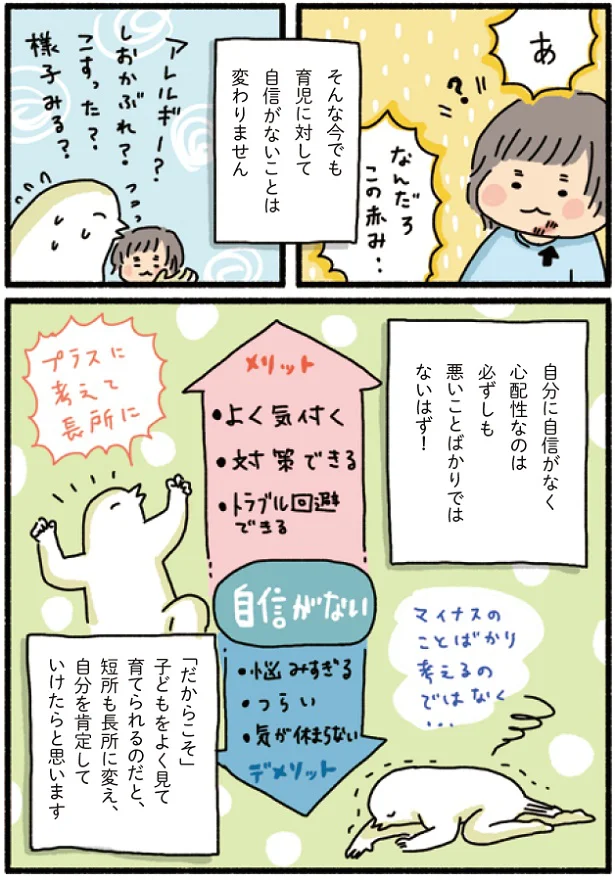 あ
なんだろ
この赤み‥
?
そんな今でも
育児に対して
自信がないことは
変わりません
アレルギー？
しおかぶれ？
こすった？
様子みる？
自分に自信がなく
心配性なのは
必ずしも
悪いことばかりでは
ないはず！
メリット
・よく気付く
・対策できる
・トラブル回避
できる
自信がない
・悩みすぎる
・つらい
・気が休まらない
デメリット
プラスに
考えて
長所に
マイナスの
ことばかり
考えるの
ではなく
‥‥
「だからこそ」
子どもをよく見て
育てられるのだと、
短所も長所に変え、
自分を肯定して
いけたらと思います